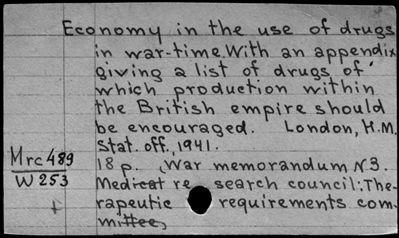 Economy in the use of drugs
in war-time. With an appendix
giving a list of drugs of
which production within
the British empire should
be encouraged. London, H.M.
Stat. off., 1941.
Mrc 489
W 253
18 p. (War memorandum N3.
Medical re search council: The-
rapeutic requirements com-
mittee)